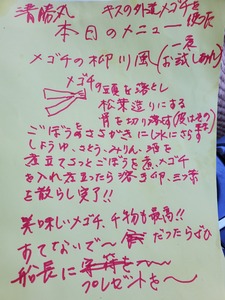 清勝丸 キスの外道メゴチを使った
本日のメニュー
メゴチの柳川風(一度お試しあれ)
メゴチの頭を落とし
松葉造りにする
骨を切り落せば
ごぼうをささがきにし水にさらす
しょうゆ、さとう、みりん、酒を
煮立てさっとごぼうを煮、メゴチ
を入れ煮立ったら溶き卵、三ツ葉
を散らし完了!!
美味しいメゴチ、干物も最高!!
すてないで〜 だったらぜひ
船長に
プレゼントを〜